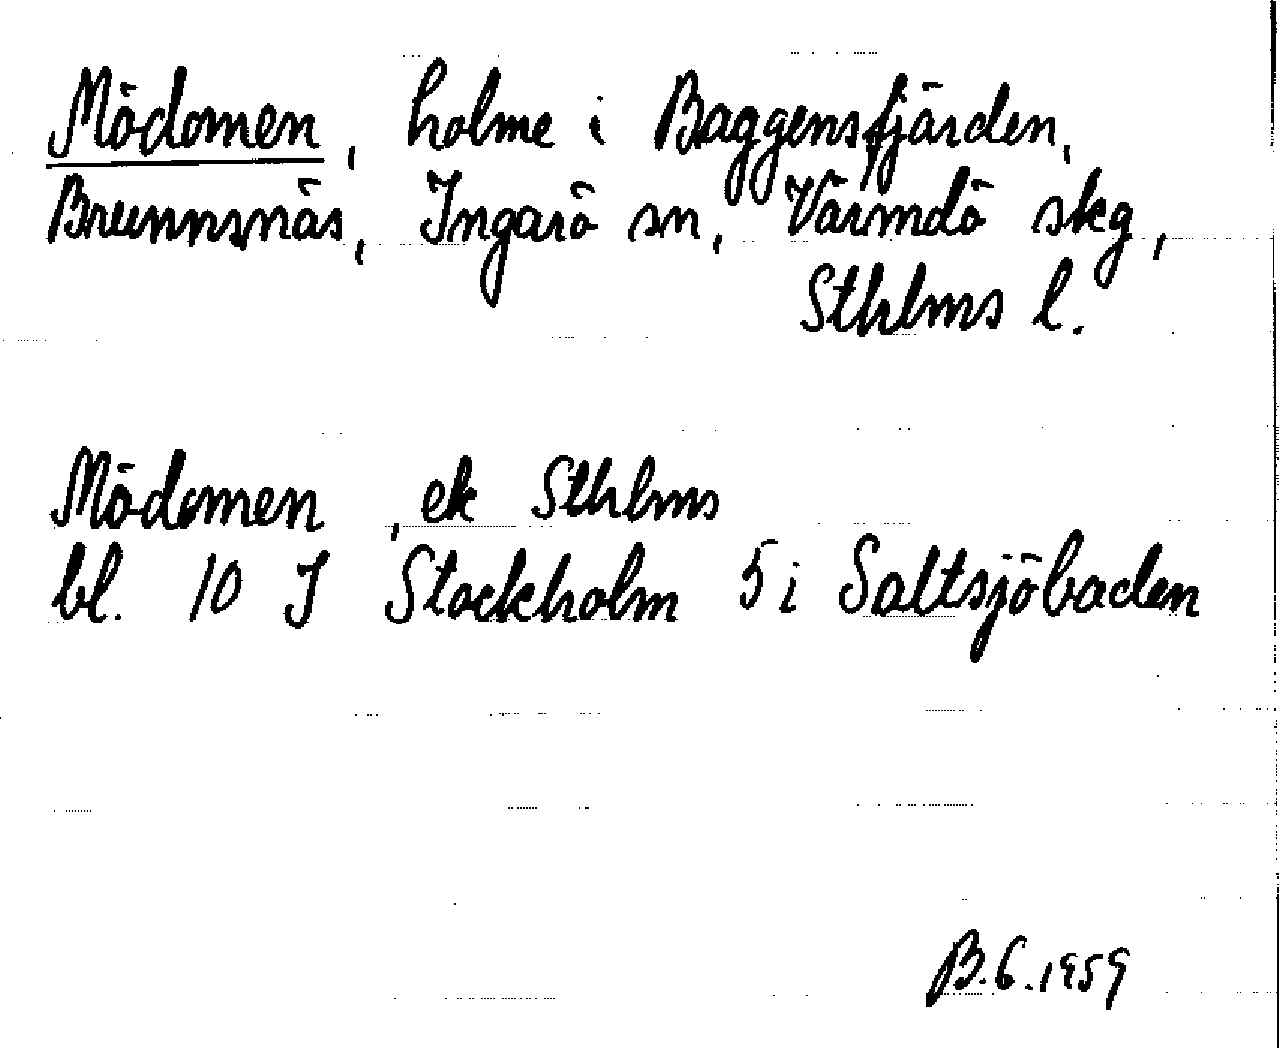 Mödomen, holme i Baggensfjärden,
Brunnsnäs, Ingarö sn, Värmdö skg,
Sthlms l.
Mödomen, ek Sthlms
bl. 10 J Stockholm 5 i Saltsjöbaden
B.G. 1959